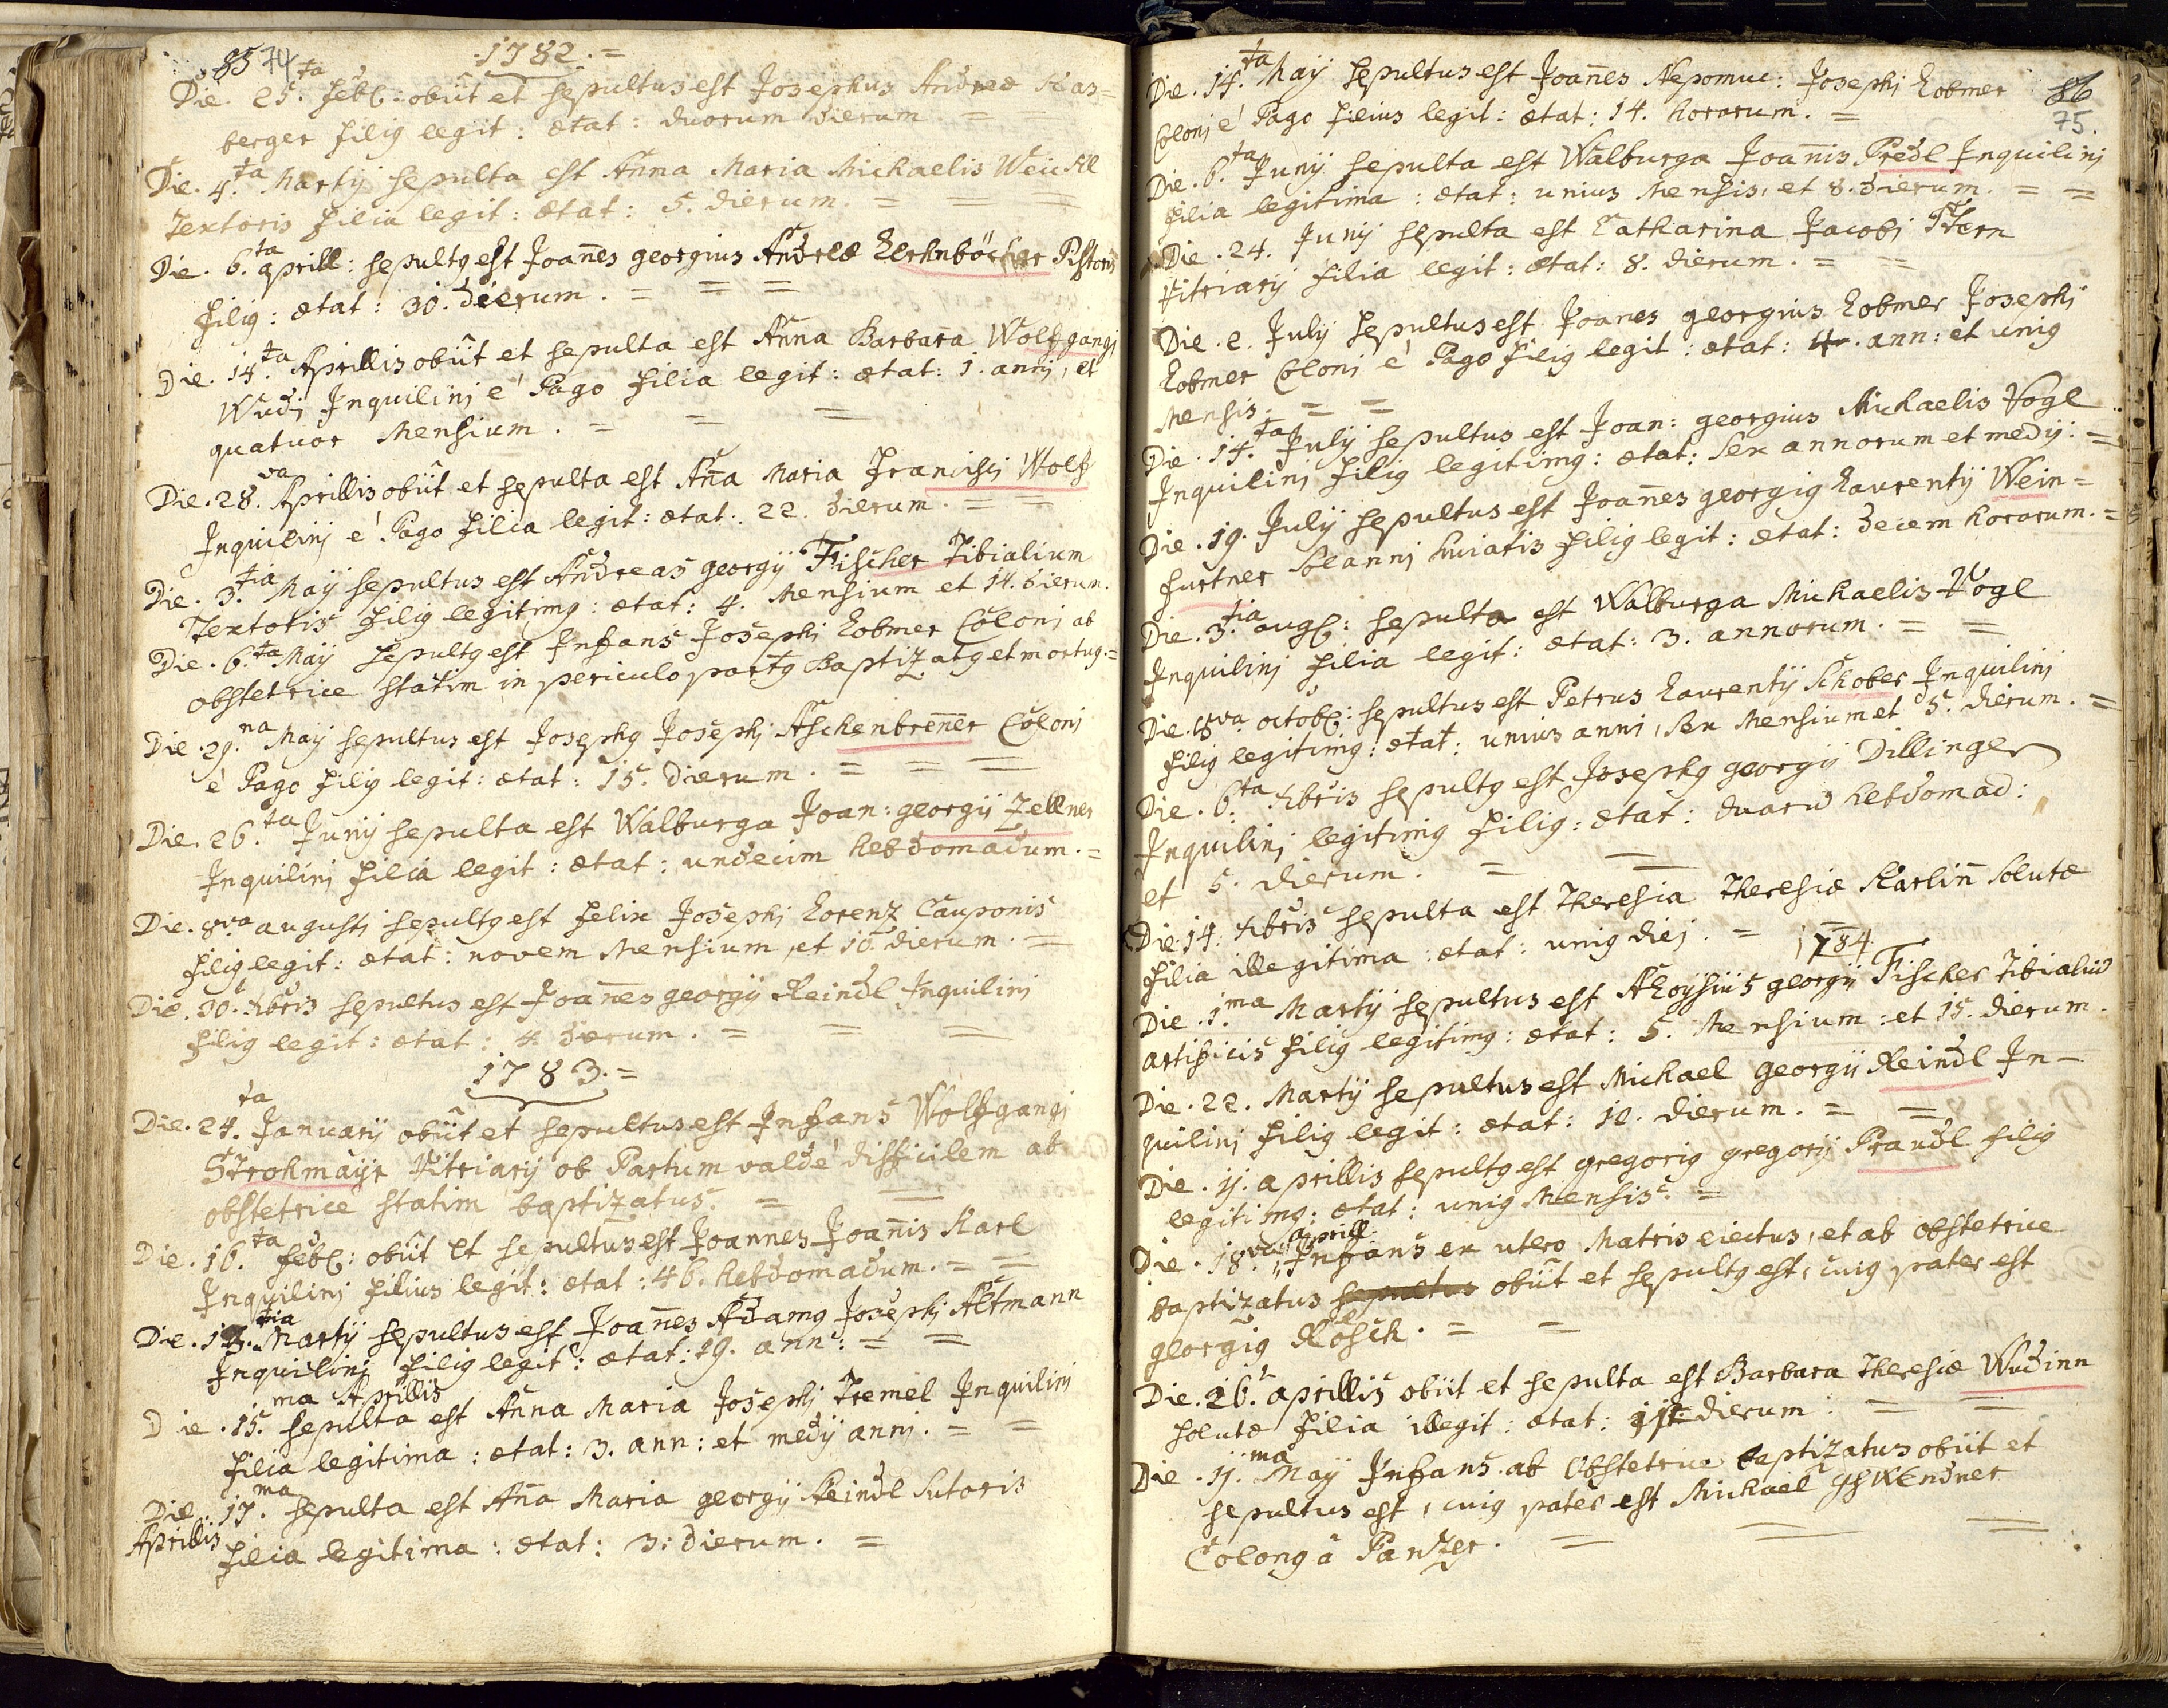 85 74
1782. =
Die. 25.ta feb: obiit et sepultus est Josephus Andreæ Kas=
berger filig legit: ætat: duorum dierum. =
Die. 4.ta Martij sepulta est Anna Maria Michaelis Weickl
Textoris filia legit: ætat: 5. dierum. = = =
Die. 6.ta aprill: sepultg est Joannes georgius Andreæ Pistoris
filig: ætat: 30. dierum. = = =
Die. 14.ta Aprillis obiit et sepulta est Anna Barbara Wolfgangi
Wudj Inquilinj è Pago filia legit: ætat: 1. annj, et
quatuor Mensium. = = =
Die. 28.va Aprillis obiit et sepulta est Anna Maria Francisci Wolf
Inquilinj è Pago filia legit: ætat: 22. dierum. = =
Die. 3.tia Maij sepultus est Andreas georgij Fischer Tibialium
Textoris filig legitimg: ætat: 4. Mensium et 14. dierum.
Die. 6.ta Maij sepultg est Infans Josephi Lobmer Colonj ab
obstetrice statim in periculo partg baptizatg et mortug. =
Die. 29.na Maij sepultus est Josephg Josephj Aschenbrenner Colonj
è Pago filig legit: ætat: 15. dierum. = = =
Die. 26.ta Junij sepulta est Walburga Joan: georgij Zellner
Inquilinj filia legit: ætat: undecim hebdomadum. =
Die. 8.va augusti sepultg est felix Josephj Lorenz Cauponis
filig legit: ætat: novem Mensium, et 10. dierum. =
Die. 30. Xbris sepultus est Joannes georgij Reindl Inquilinj
filig legit: ætat: 4 dierum. = = =
1783. =
Die. 24.ta Januarij obiit et sepultus est Infans Wolfgangj
Strohmayr Vitriarij ob Partum valdè difficilem ab
obstetrice statim baptizatus. = =
Die. 16.ta feb: obiit et sepultus est Joannes Joannis Karl
Inquilinj filius legit: ætat: 46. hebdomadum. = =
Die. 13.tia Martij sepultus est Joannes Adamg Josephj Altmann
Inquilinj filig legit: ætat: 19. ann: = =
Die. 15.ma Aprillis sepulta est Anna Maria Josephj Tremel Inquilinj
filia legitima: ætat: 3. ann: et medij annj. = =
Die. 17.ma sepulta est Anna Maria georgij Reindl Sutoris
Aprillis filia legitima: ætat: 3: dierum. =
Die. 14.ta Maij sepultus est Joannes Nepomuc: Josephj Lobmer
86
75.
Colonj è Pago filius legit: ætat: 14. horarum. =
Die. 6.ta Junij sepulta est Walburga Joannis Predl Inquilinj
filia legitima: ætat: unius Mensis, et 8. dierum. = =
Die. 24. Junij sepulta est Catharina Jacobj Stern
Vitriarij filia legit: ætat: 8. dierum. = =
Die. 2. Julij sepultus est Joanes georgius Lobmer Josephj
Lobmer Colonj è Pago filig legit: ætat: ann: et unig
Mensis. = =
Die. 14.ta Julij sepultus est Joan: georgius Michaelis Vogl
Inquilinj filig legitimg: ætat: sex annorum et medij: =
Die. 19. Julij sepultus est Joannes georgig Laurentij Wein=
furtner huiatis filig legit: ætat: decem horarum. =
Die. 3.tia aug: sepulta est Walburga Michaelis Vogl
Inquilinj filia legit: ætat: 3. annorum. = =
Die. octob: sepultus est Petrus Laurentij Schober Inquilinj
filig legitimg: ætat: unius anni, sex Mensium et 5. dierum. =
Die. 6.ta Xbris sepultg est Josephg georgij Dillinger
Inquilinj legitimg filig: ætat: duarū hebdomad:
et 5. dierum. = =
Die. 14. Xbris sepulta est Theresia Theresiæ Karlinn Solutæ
filia illegitima: ætat: unig diej. =
1784.
Die. 1.ma Martij sepultus est Aloysius georgij Fischer Tibialiū
artificis filig legitimg: ætat: 5. Mensium: et 15. dierum.
Die. 22. Martij sepultus est Michael georgij Reindl In-
quilinj filig legit: ætat: 10. dierum. = =
Die. 11. aprillis sepultg est gregorig gregorij Prandl filig
legitimg: ætat: unig Mensis. =
Die. 18.va aprill: Infans ex utero Matris eiectus, et ab obstetrice
baptizatus sepultus obiit et sepultg est, cuig pater est
georgig Rösch. = =
Die. 26. aprillis obiit et sepulta est Barbara Theresiæ Wudinn
solutæ filia illegit: ætat: dierum: = =
Die. 11.ma Maij Infans ab Obstetrice baptizatus obiit et
sepultus est, cuig pater est Michael Gschwendner
Colong à Panzer. = = =